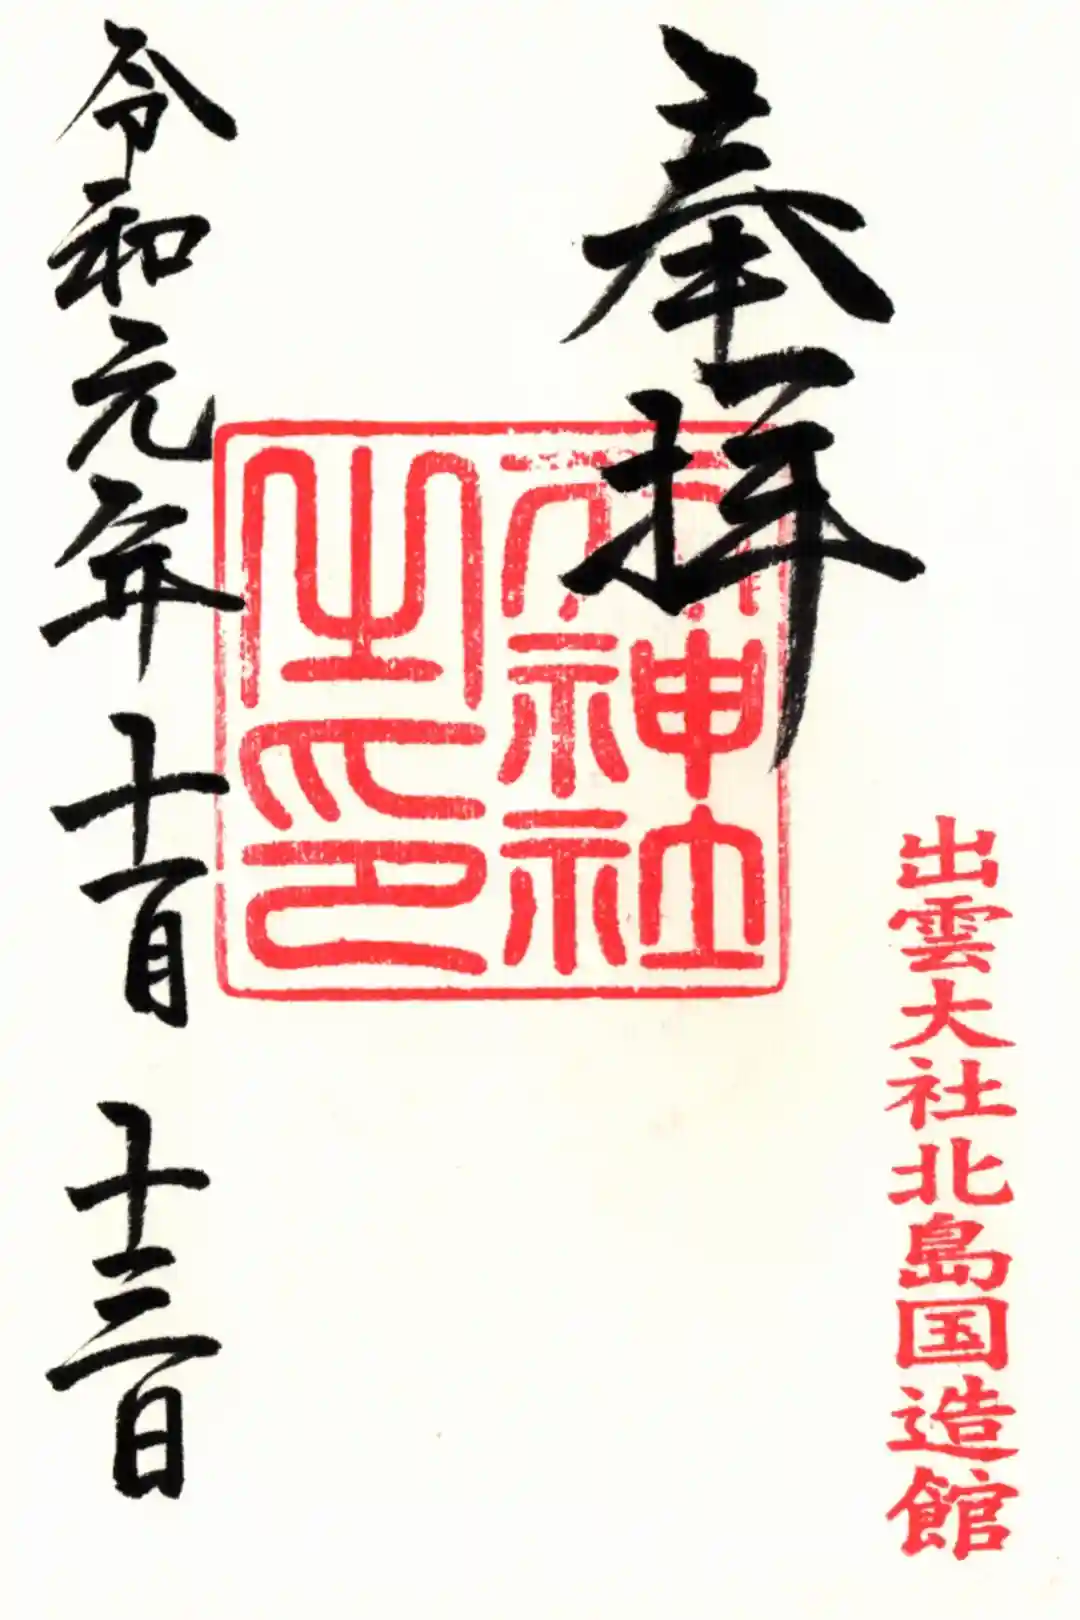 出雲大社北島国造館
奉拝
天神社
之印
令和元年十一月十三日